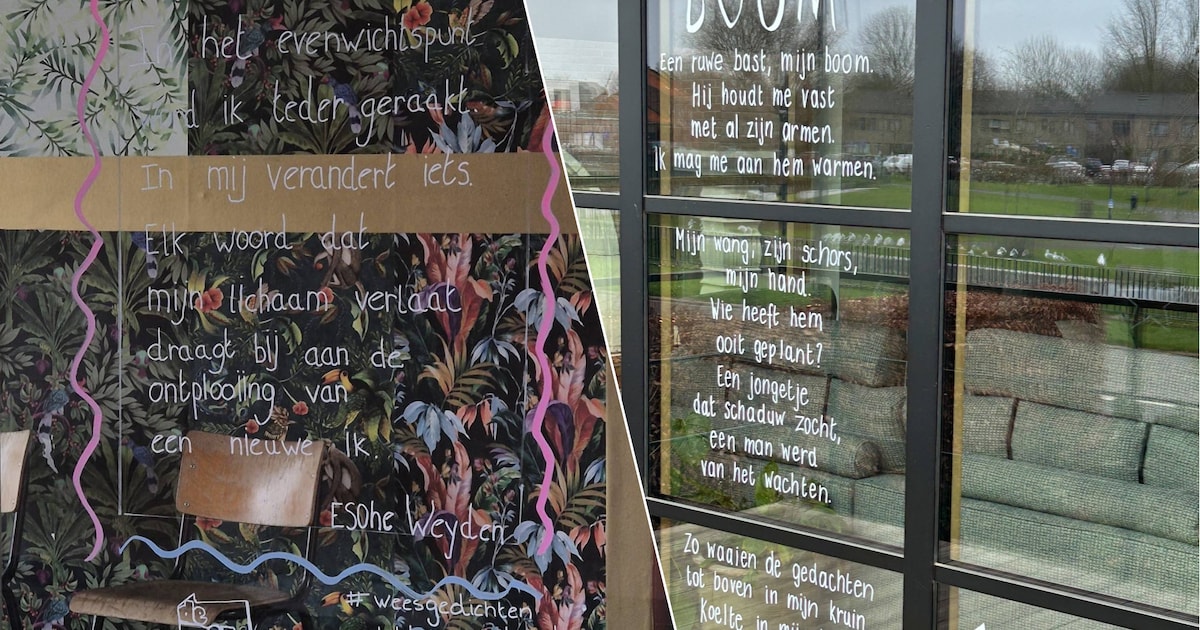 In het evenwichtspunt
word ik teder geraakt.
In mij verandert iets.
Elk woord dat
mijn lichaam verlaat
draagt bij aan de
ontplooiing van
een nieuwe Ik.
ESOhe Weyden
#weesgedichten
BOOM
Een ruwe bast, mijn boom.
Hij houdt me vast
met al zijn armen.
Ik mag me aan hem warmen.
Mijn wang, zijn schors,
mijn hand.
Wie heeft hem
ooit geplant?
Een jongetje
dat schaduw zocht,
een man werd
van het wachten.
Zo waaien de gedachten
tot boven in mijn kruin
Koelte in mijn